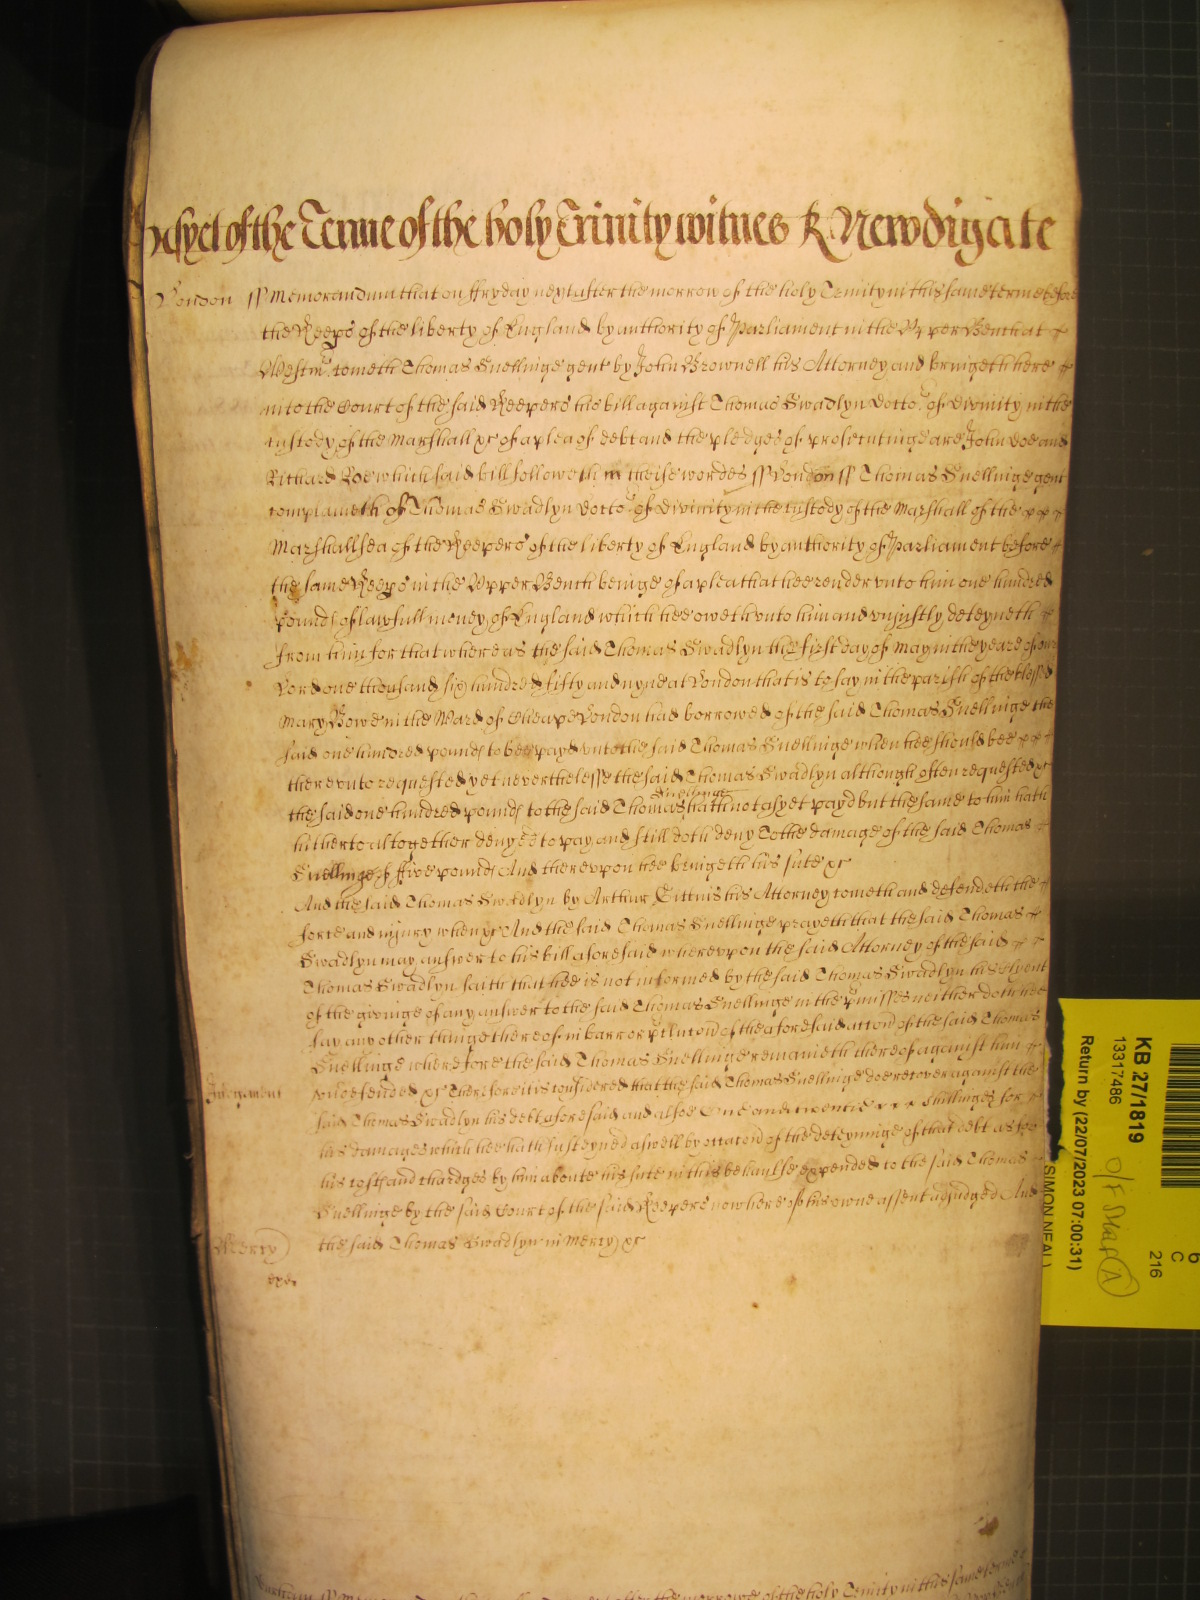 As yet of the Terme of the holy Trinity witnes R Newdigate
London ss Memorandum that on ffryday next after the morrow of the holy Trinity in this same terme before
the Keeps of the liberty of England by authority of Parliament in the Upper Bench at
Westm cometh Thomas Snellinge gent by John Brownell his Attorney and bringeth here
into the Court of the said Keepers his bill against Thomas Swadlyn Doctor of Divinity in the
custody of the Marshall &c of a plea of debt and the pledges of prosecutinge are John Doe and
Richard Roe which said bill followeth in theise wordes ss London ss Thomas Snellinge gent
complaineth of Thomas Swadlyn Doctor of Divinity in the custody of the Marshall of the
Marshallsea of the Keepers of the liberty of England by authority of Parliament before
the same Keeps in the Upper Bench beinge of a plea that hee render vnto him one hundred
pounds of lawfull money of England which hee oweth vnto him and vniustly deteyneth
from him for that whereas the said Thomas Swadlyn the first day of May in the yeare of our
Lord one thousand six hundred fifty and nyne at London that is to say in the parish of the blessed
Mary Bowe in the Ward of Cheape London had borrowed of the said Thomas Snellinge the
said one hundred pounds to bee payd vnto the said Thomas Snellinge when hee should bee
therevnto requested yet neverthelesse the said Thomas Swadlyn although often requested &c
the said one hundred pounds to the said Thomas Snellinge hath not as yet payd but the same to him hath
hitherto altogether denyed to pay and still doth deny To the damage of the said Thomas
Snellinge of ffive pounds And therevpon hee bringeth his sute &c
And the said Thomas Swadlyn by Arthur his Attorney cometh and defendeth the
force and iniury when &c And the said Thomas Snellinge prayeth that the said Thomas
Swadlyn may answer to his bill aforesaid wherevpon the said Attorney of the said
Thomas Swadlyn saith that hee is not informed by the said Thomas Swadlyn his Clyent
of the givinge of any answer to the said Thomas Snellinge in the pmisses neither doth hee
say any other thinge thereof in barr or pclusion of the aforesaid accon of the said Thomas
Snellinge wherefore the said Thomas Snellinge remaineth thereof against him
Judgement vndefended &c Therefore it is considered that the said Thomas Snellinge doe recover against the
said Thomas Swadlyn his debt aforesaid and alsoe One and twentie shillinges for
his damages which hee hath susteyned aswell by occacon of the deteyninge of that debt as for
his costs and chardges by him aboute his sute in this behaulfe expended to the said Thomas
Snellinge by the said Court of the said Keepers now here of his owne assent adiudged And
Mercy the said Thomas Swadlyn in Mercy &c
KB 27/1819
13317486
Return by (22/07/2023 07:00:31)
SIMON NEAL)
O/F
A
6
C
216